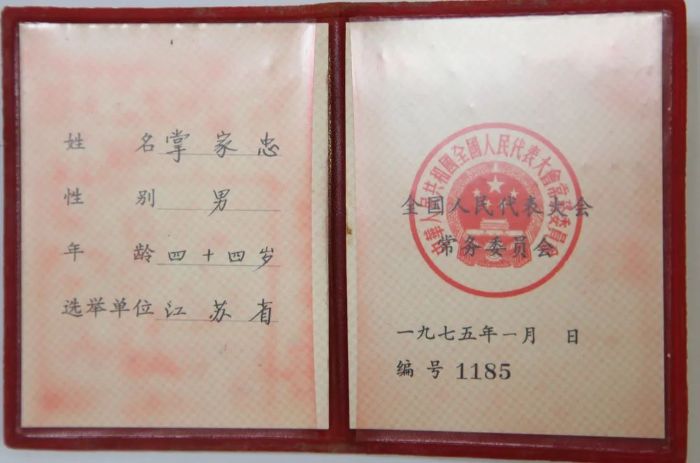 姓名 掌家忠
性别 男
年龄 四十四岁
选举单位 江苏省
中華人民共和國全國人民代表大會常務委員會
全国人民代表大会
常务委员会
一九七五年一月 日
编号 1185